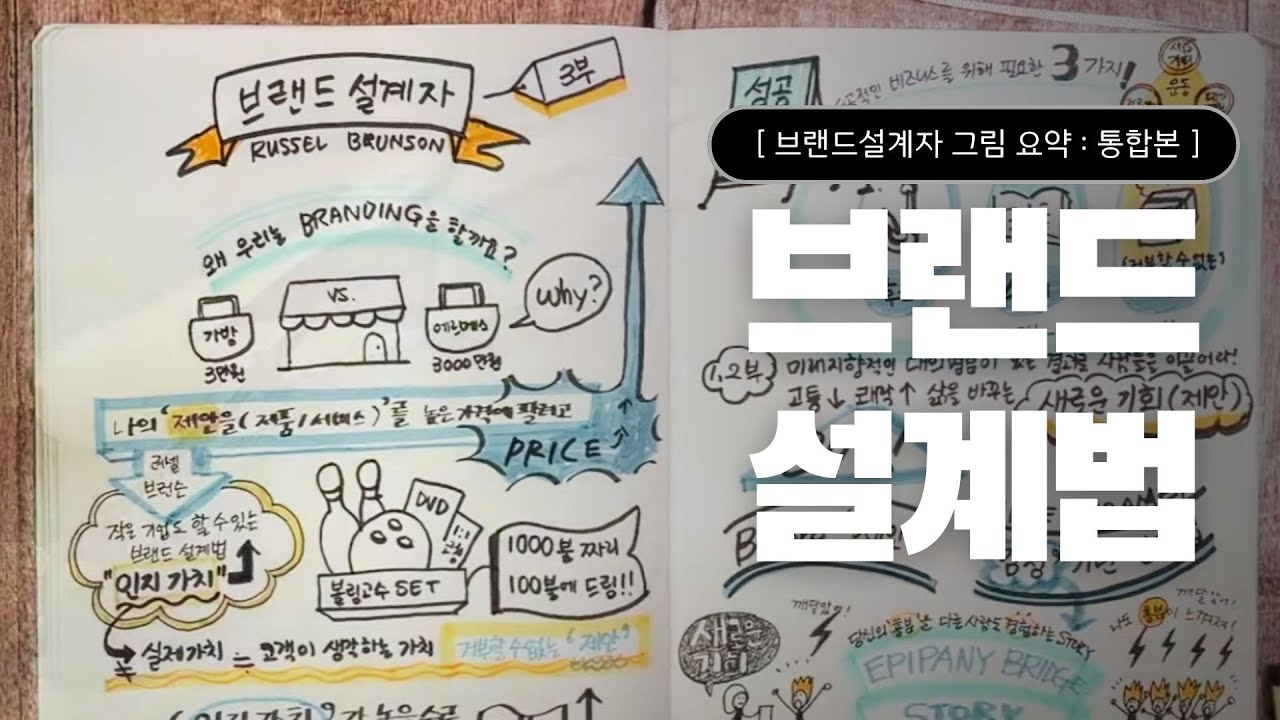 브랜드 설계자
3부
RUSSEL BRUNSON
왜 우리는 BRANDING을 할까요?
VS.
가방
3만원
에르메스
3000만원
Why?
나의 '제안을(제품/서비스)'를 높은 가격에 팔려고
PRICE
러셀
브런슨
작은 기업도 할 수 있는
브랜드 설계법
"인지 가치"
DVD
1:1
볼링고수 SET
1000불 짜리
100불에 드림!!
실제가치 = 고객이 생각하는 가치
거부할 수 없는 '제안'
"인지가치"가 높을수록
성공적인 비즈니스를 위해 필요한 3가지!
운동
[ 브랜드설계자 그림 요약 : 통합본 ]
브랜드
설계법
(거부할 수 없는)
1,2부
미래지향적인
사람들을 이끌어라!
고통↓ 쾌락↑ 삶을 바꾸는
새로운 기회(제안)
깨달았어!
새로운
기회
당신의 '통찰'을 다른 사람도 경험하는 STORY
EPIPANY BRIDGE
STORY
깨달았어!